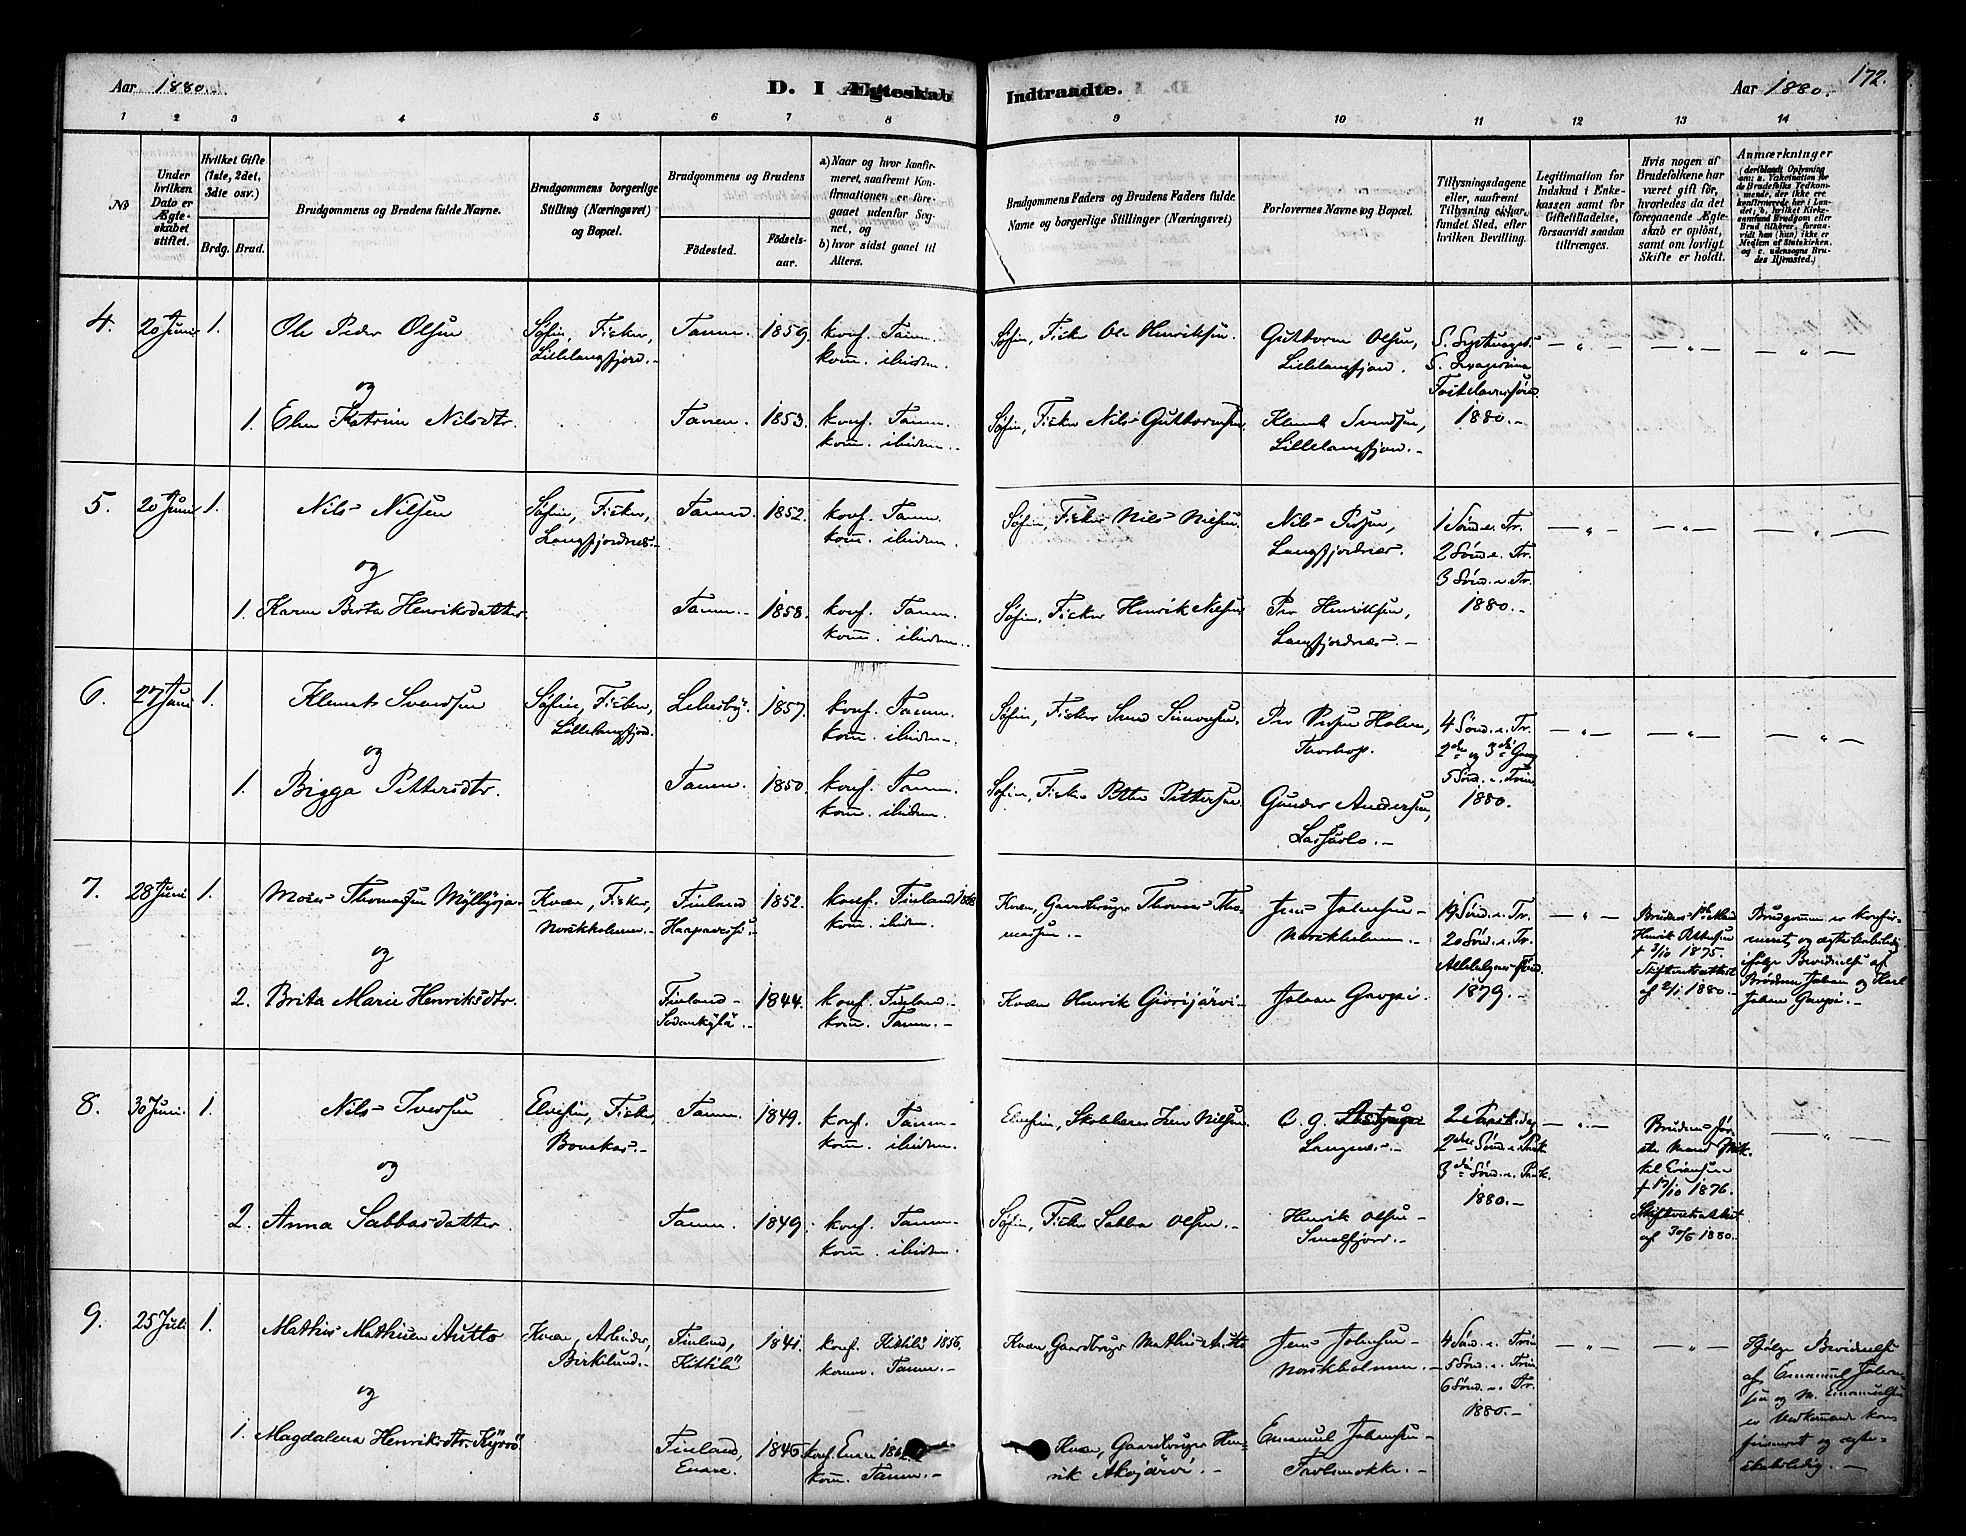 Aar 1880.
D. I Ægteskab
Indtraadte.
Aar 1880.
172.
1 2 3 4 5 6 7 8
9 10 11 12 13 14
No
Under hvilken Dato er Ægteskabet stiftet.
Hvilket Gifte (1ste, 2det, 3die osv.)
Brdg. Brud.
Brudgommens og Brudens fulde Navne.
Brudgommens borgerlige Stilling (Næringsvei) og Bopæl.
Brudgommens og Brudens
Fødested.
Fødselsaar.
a) Naar og hvor konfirmeret, saafremt Konfirmationen er foregaaet udenfor Sognet, og
b) hvor sidst gaaet til Alters.
Brudgommens Faders og Brudens Faders fulde Navne og borgerlige Stillinger (Næringsvei)
Forlovernes Navne og Bopæl.
Tillysningsdagene eller, saafremt Tillysning ei har fundet Sted, efter hvilken Bevilling.
Legitimation for Indskud i Enkekassen samt for Giftetilladelse, forsaavidt saadan tiltrænges.
Hvis nogen af Brudefolkene har været gift før, hvorledes da det foregaaende Ægteskab er opløst, samt om lovligt Skifte er holdt.
Anmærkninger
(deriblandt Oplysning om: a. Vakcination for de Brudefolks Vedkommende, der ikke ere konfirmerede her i Landet, b. hvilket Kirkesamfund Brudgom eller Brud tilhører, forsaavidt han (hun) ikke er Medlem af Statskirken, og c. udensogns Brudes Hjemsted.)
4. 20 Juni 1.
Ole Peder Olsen
Søfin, Fisker,
Lillelangfjord.
Tanen. 1859.
konf. Tanen.
kom. ibidem.
Søfin, Fisker Ole Henriksen.
Guttorm Olsen,
Lillelangfjord.
1880.
og
1. Elen Katrine Nilsdtr.
Tanen. 1853.
konf. Tanen.
kom. ibidem.
Søfin, Fisker Nils Guttormsen.
Klemet Svendsen,
Lillelangfjord.
5. 20 Juni 1.
Nils Nilsen
Søfin, Fisker,
Langfjordnæs.
Tanen. 1852.
konf. Tanen.
kom. ibidem.
Søfin, Fisker Nils Nilsen.
Nils Persen,
Langfjordnæs.
1 Sønd. e. Tr.
2 Sønd. e. Tr.
3 Sønd. e. Tr.
1880.
og
1. Karen Berta Henriksdatter.
Tanen. 1858.
konf. Tanen.
kom. ibidem.
Søfin, Fisker Henrik Nilsen
Per Henriksen,
Langfjordnæs.
6. 27 Juni 1.
Klemet Svendsen
Søfin, Fisker,
Lillelangfjord.
Lebesby. 1857.
konf. Tanen.
kom. ibidem.
Søfin, Fisker Svend Simonsen.
Per Persen Holm,
Torhop.
4 Sønd. e. Tr.
2den og 3die Gang
5 Sønd. e. Trin.
1880.
og
1. Bigga Pettersdtr.
Tanen. 1850.
konf. Tanen.
kom. ibidem.
Søfin, Fisker Petter Pettersen
Gunder Andersen,
7. 28 Juni 1.
Moses Thomassen Myllyoja
Kvæn, Fisker,
Norskholmen.
Finland
Haapavesi. 1852.
konf. Finland 1868
kom. ibidem.
Kvæn, Gaardbruger Thomas Thomassen.
Jens Johnsen
Norskholmen.
19 Sønd. e. Tr.
20 Sønd. e. Tr.
Allehelgens Sønd.
1879.
Brudens 1ste Mand
Henrik Pettersen
† 3/10 1875.
Skifteretsattest
af 2/1 1880.
Brudgommen er konfirmeret og ægteskabsledig
ifølge Bevidnelse af
Brødrene Johan og Karl
Johan Gaupi.
og
2. Brita Marie Henriksdtr.
Finland
Sodankylä. 1844.
konf. Finland.
kom. Tanen.
Kvæn Henrik Giorijärvi
Johan Gaupi.
8. 30 Juni. 1.
Nils Iversen
Elvefin, Fisker
Bonakas.
Tanen. 1849.
konf. Tanen.
kom. ibidem.
Elvefin, Skolelærer Iver Nilsen.
C. G.
Langnes.
2den Sønd. e. Paask.
3die Sønd. e. Paask.
1880.
Brudens første Mand Mikkel
† 17/10 1876.
Skifteretsattest
af 30/6 1880.
og
2. Anna Sabbasdatter
Tanen. 1849.
konf. Tanen.
kom. ibidem.
Søfin, Fisker Sabba Olsen.
Henrik Olsen
Smalfjord.
9. 25 Juli 1.
Mathis Mathisen Autto
Kvæn, Arbeider,
Birkelund.
Finland,
Kittilä 1841.
konf. Kittilä 1856.
komm. Tanen.
Kvæn, Gaardbruger Mathis Autto
Jens Johnsen
Norskholmen.
4 Sønd. e. Trin.
5 Sønd. e. Trin.
6 Sønd. e. Tr.
1880.
Ifølge Bevidnelse
af Emanuel Johnsen og M. Emanuelsen
er Vedkommende konfirmeret og ægteskabsledig.
og
1. Magdalena Henriksdtr. Kyrö
Finland,
Enare. 1845
konf. Enare
kom. Tanen.
Kvæn, Gaardbruger Henrik Akujärvi.
Emanuel Johnsen